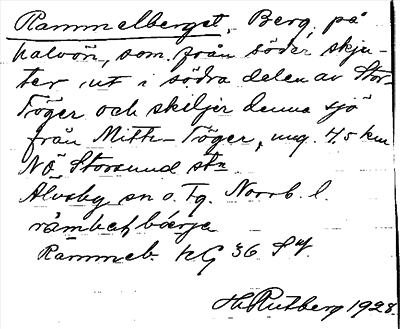 Rammelberget, Berg, på
halvön, som från söder skju-
ter ut i södra delen av Stor-
Töger och skiljer denna sjö
från Mitti-Töger, ung. 4.5 km
NÖ Storsund stn
Älvsby sn o. Tg. Norrb. l.
Rammeb. KG 36 SV.
H. Rutberg 1928.